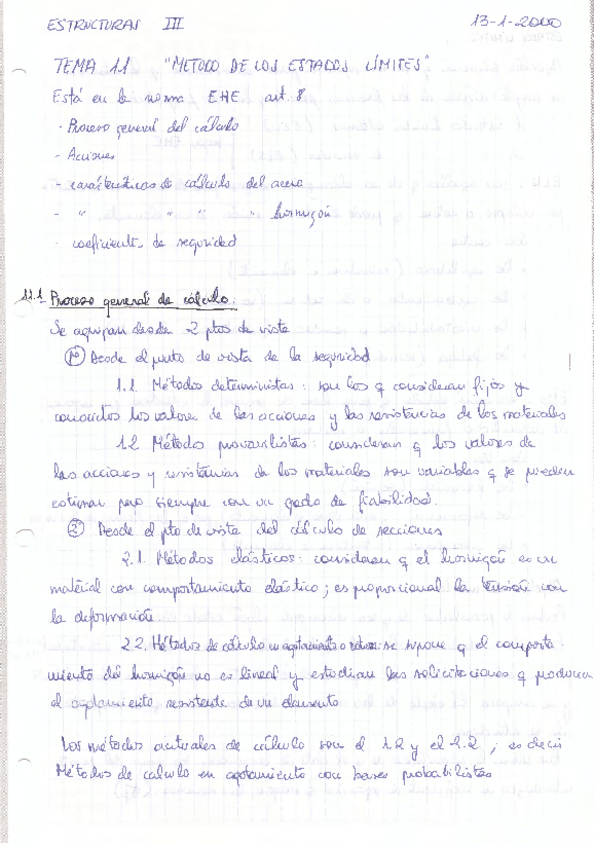 ESTRUCTURAS III 13-1-2000
TEMA 11 "METODO DE LOS ESTADOS LÍMITES"
Está en la norma EHE art. 8
- Proceso general del cálculo
- Acciones
- características de cálculo del acero
- " " " " hormigón
- coeficiente de seguridad
11.1 Proceso general de cálculo:
Se agrupan desde 2 ptos de vista
1º Desde el punto de vista de la seguridad
1.1. Métodos deterministas: son los q consideran fijos y
conocidos los valores de las acciones y las resistencias de los materiales
1.2 Métodos provavilistas: consideran q los valores de
las acciones y resistencias de los materiales son variables q se pueden
estimar pero siempre con un grado de fiabilidad.
2 Desde el pto de vista del cálculo de secciones
2.1. Métodos elásticos: consideran q el hormigón es un
material con comportamiento elástico; es proporcional la tensión con
la deformación
2.2. Métodos de cálculo en agotamiento o rotura: se supone q el comporta
miento del hormigón no es lineal y estudian las solicitaciones q producen
el agotamiento resistente de un elemento
Los métodos actuales de cálculo son el 1.2 y el 2.2; es decir
Métodos de calculo en agotamiento con bases probabilistas